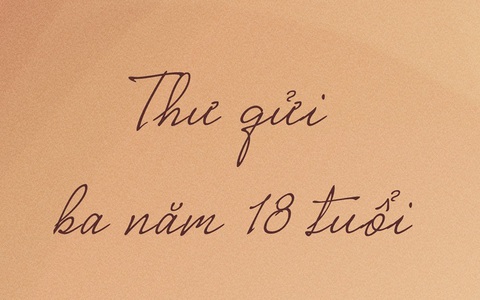 Thư gửi
ba năm 18 tuổi